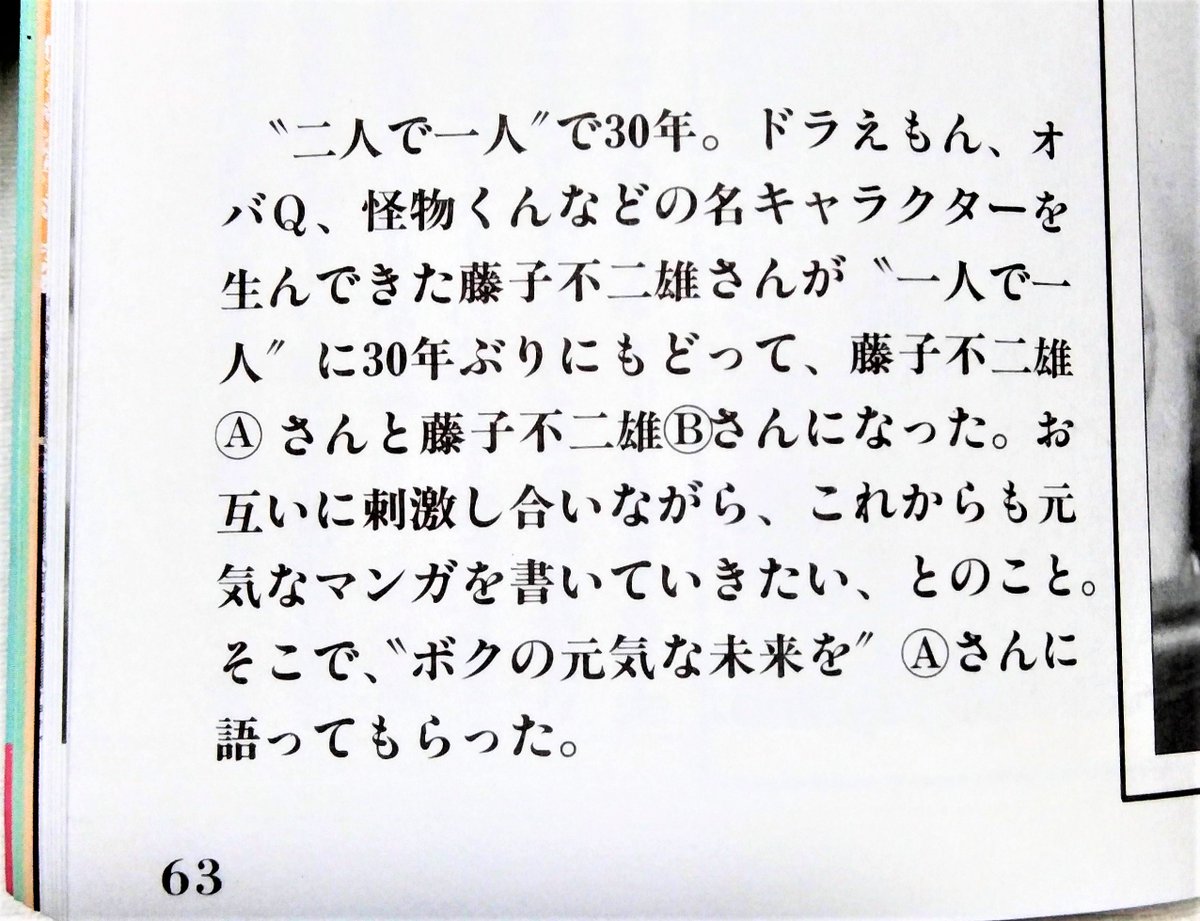 〝二人で一人〟で30年。ドラえもん、オ
バQ、怪物くんなどの名キャラクターを
生んできた藤子不二雄さんが〝一人で一
人〟に30年ぶりにもどって、藤子不二雄
Ⓐさんと藤子不二雄Ⓑさんになった。お
互いに刺激し合いながら、これからも元
気なマンガを書いていきたい、とのこと。
そこで、〝ボクの元気な未来を〟Ⓐさんに
語ってもらった。
63